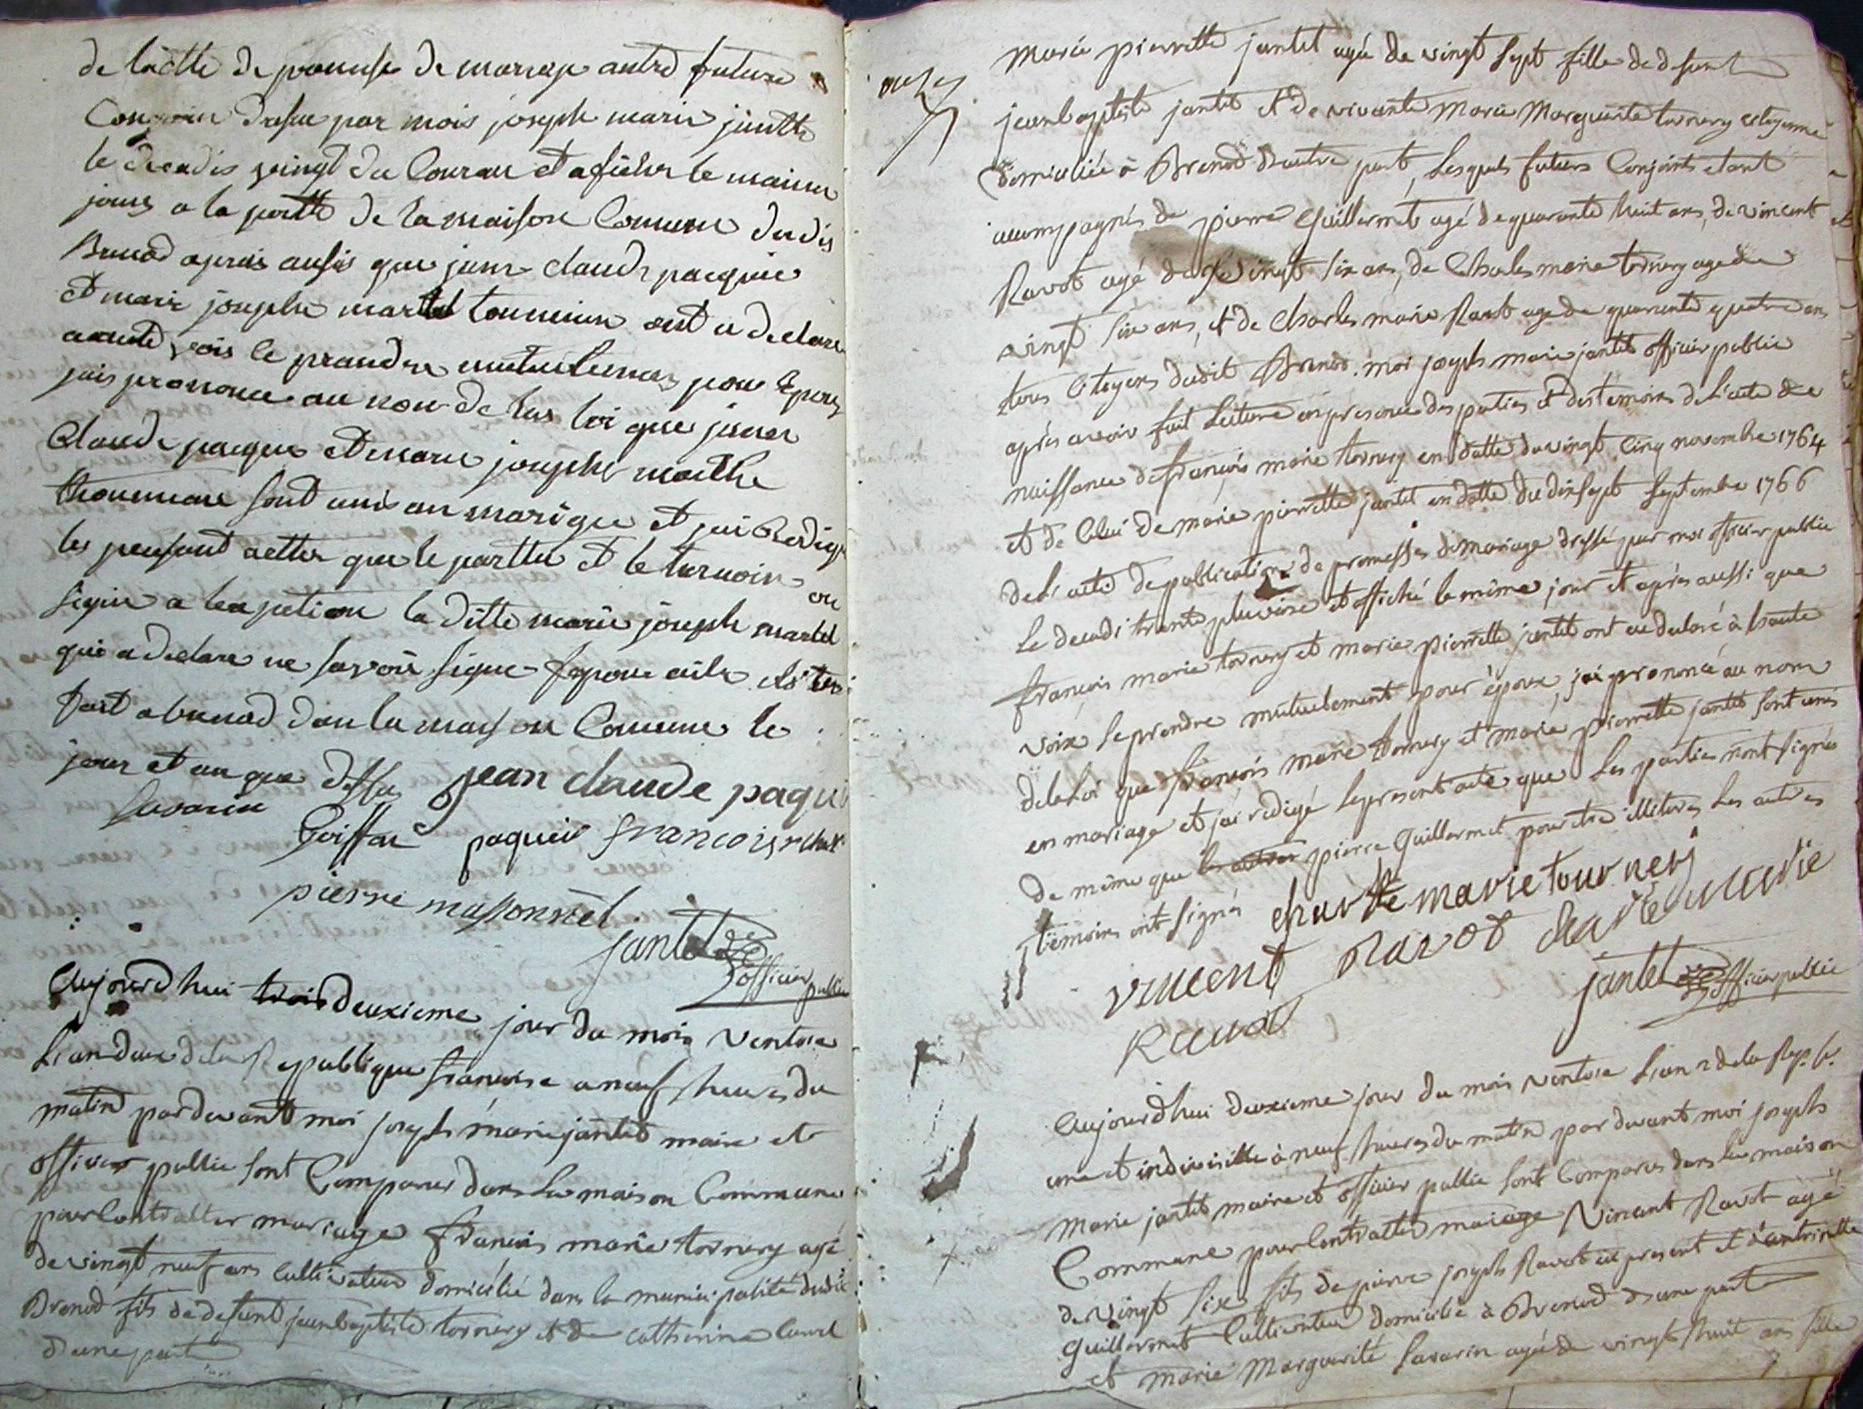 de lactte de promesse de mariage antre future
Conjoin dresse par mois joseph marie jantte
le decadis vingt du Couran et afficher le maime
jours a la portte de la maison Comune dudis
Brenod apreis ausis que jean claude pacquie
et marie josephe martel tournieur ont a declare
aaute vois le prandre mutuelement pour Epoux
jais prononce au non de las loi que jean
Claude paque et marie josephe marthe
thournieur sont unis an mariage et jai Redige
les presant actte que le parttie et le temoin on
signe a lexspetion la ditte marie joseph martel
qui a declare ne savoir signe
fait a brenod dan la maison Comune le
jour et an que dessu jean claude paqui
Savarin Goiffon paquis francois
pierre massonnet
jantet officier public
Aujourd'hui trois deuxieme jour du mois ventose
L'an deux de la Republique francoise a neuf heures du
matin par devant moi joseph marie jantet maire et
officier public sont Comparus dans la maison Commune
pour Contratter mariage francois marie tornery agé
de vingt neuf ans Cultivateur domicilié dans la municipalité dudit
Brenod fils de defunt jeanbaptiste tornery et de catherine
d'une part
marie pierrette jantet agée de vingt sept fille de defunt
jeanbaptiste jantet et de vivante Marie Marguerite tornery citoyenne
domiciliée à Brenod d'autre part, Lesquels futurs Conjoints etant
accompagnés de pierre Guillermet agé de quarante huit ans, de vincent
Ravot agé de vingt six ans, de Charles marie tornery age de
vingt six ans, et de Charles marie Ravot age de quarante quatre ans
tous Citoyens dudit Brenod. moi joseph marie jantet officier public
après avoir fait Lecture en presence des parties et des temoins de L'acte de
naissance de françois marie tornery en datte du vingt Cinq novembre 1764
et de Celui de marie pierrette jantet en datte du dixsept Septembre 1766
de L'acte de publication de promesses de mariage dressé par moi officier public
Le decadi trente pluviose et affiché le même jour et après aussi que
françois marie tornery et marie pierrette jantet ont eu declaré à haute
voix se prendre mutuelement pour époux, j'ai prononcé au nom
de la Loi que françois marie tornery et marie pierrette jantet sont unis
en mariage et j'ai redigé le present acte que Les parties n'ont signés
de même que pierre Guillermet pour etre illiteres Les autres
temoins ont signés charle marie tournery
vincent Ravot charle marie
Ravot jantet officier public
Aujourd'hui deuxieme jour du mois ventose L'an 2 de la Rep. f.
une et indivisible à neuf heures du matin par devant moi joseph
Marie jantet maire et officier public sont Comparus dans la maison
Commune pour Contratter mariage Vincent Ravot agé
de vingt six fils de pierre joseph Ravot ici present et d'antoinette
Guillermet Cultivateur domicilié à Brenod d'une part
et marie Marguerite Savarin agée de vingt huit ans fille